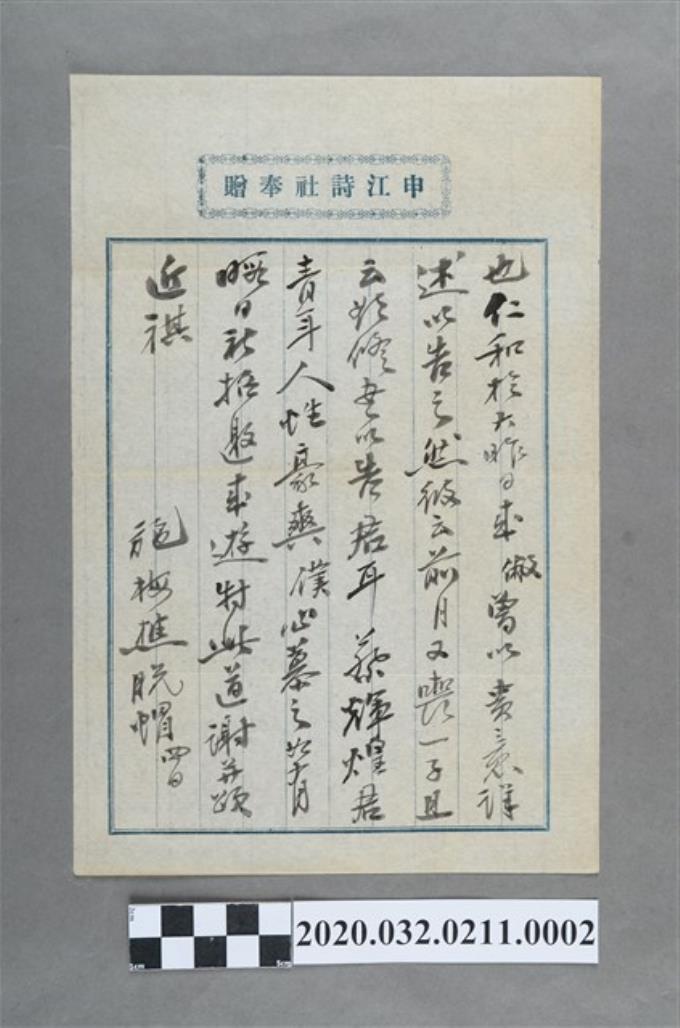 申江詩社奉贈
也仁和於大昨日來 僕曾以貴意詳
述以告之然彼云前月又喪一子且
云 無以告君耳 蔡輝煌君
青年人性豪爽僕心慕之 月
暇日 遊特此道謝並頌
近祺
施梅樵脫帽 四日
2020.032.0211.0002